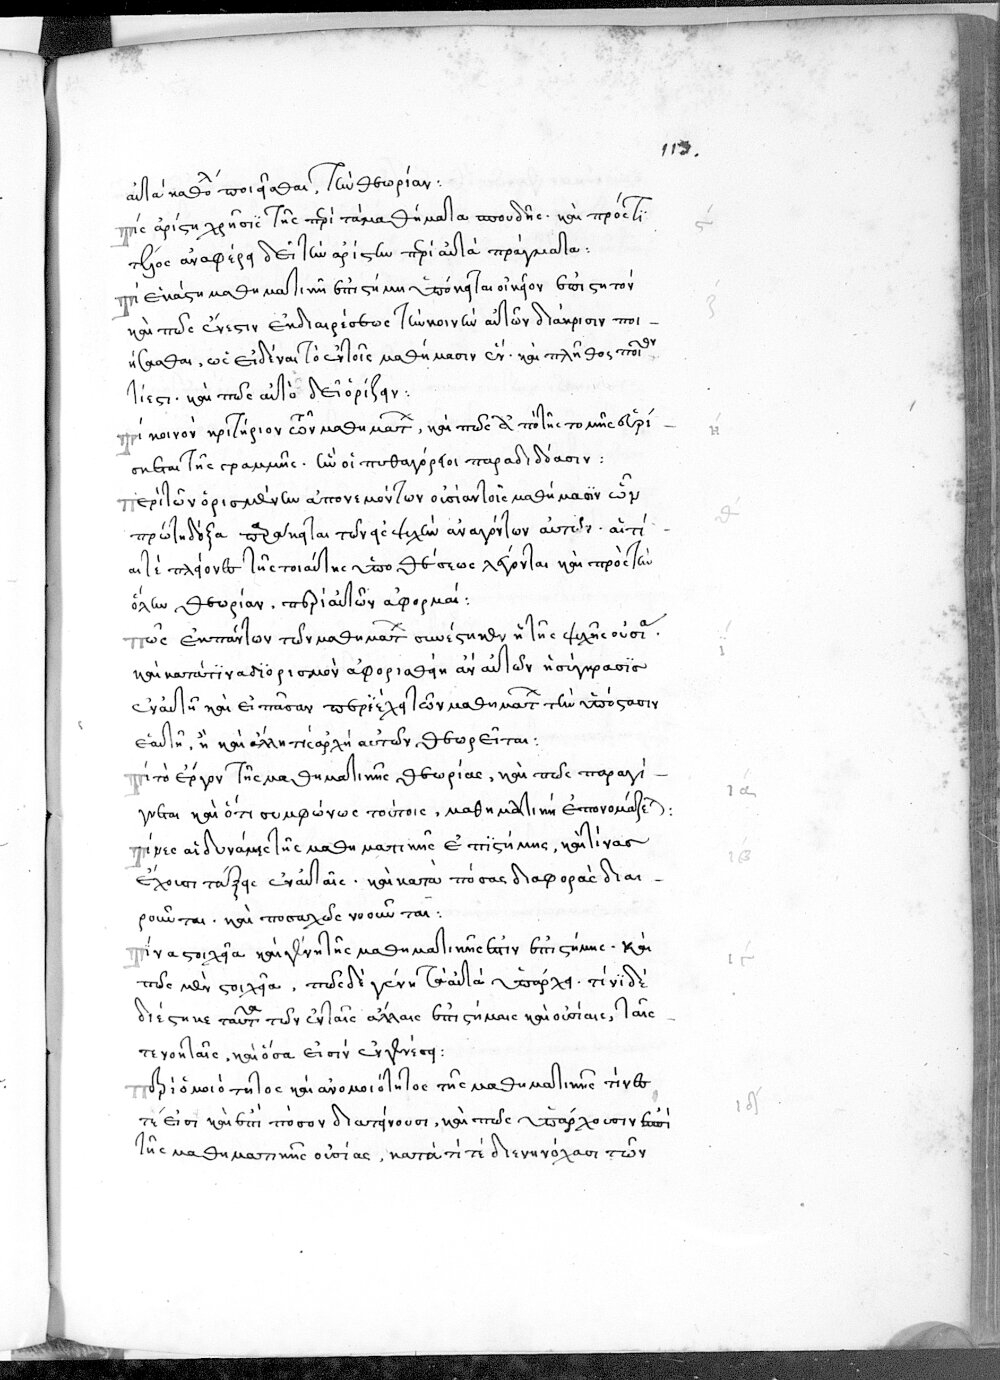 113.
αὐτὰ καθόλου ποιεῖσθαι, τὴν θεωρίαν:
Τίς ἀρίστη χρῆσις τῆς περὶ τὰ μαθήματα σπουδῆς· καὶ πρὸς τί ϛ´
τέλος ἀναφέρειν δεῖ τὴν ἀρίστην περὶ αὐτὰ πραγματείαν:
Τί ἑκάστη μαθηματικῇ ἐπιστήμη ὑπόκειται οἰκεῖον ἐπιστητόν ζ´
καὶ πῶς ἔνεστιν ἐκ διαιρέσεως τὴν κοινὴν αὐτῶν διάκρισιν ποι-
ήσασθαι, ὡς εἰδέναι τὸ ἐν τοῖς μαθήμασιν ἕν· καὶ πλῆθος ποῖον
τί ἐστι· καὶ πῶς αὐτὸ δεῖ ὁρίζειν:
Τί κοινὸν κριτήριον τῶν μαθημάτων, καὶ πῶς ἀπὸ τῆς τομῆς εὑρί- η´
σκεται τῆς γραμμῆς· ἣν οἱ πυθαγόρειοι παραδιδόασιν:
Περὶ τῶν ὁρισμένην ἀπονεμόντων οὐσίαν τοῖς μαθήμασιν θ´
πρώτη δόξα τῶν εἰς ψυχὴν ἀναγόντων αὐτήν· αἵτι-
αί τε πλείονες τῆς τοιαύτης ὑποθέσεως λέγονται καὶ πρὸς τὴν
ὅλην θεωρίαν, περὶ αὐτῶν ἀφορμαί:
Πῶς ἐκ πάντων τῶν μαθημάτων συνέστηκεν ἡ τῆς ψυχῆς οὐσία· ι´
καὶ κατὰ τίνα διορισμὸν ἀφορισθείη ἂν αὐτῶν ἡ σύγκρασις
ἐν αὐτῇ καὶ εἰ πᾶσαν περιέχει τῶν μαθημάτων τὴν ὑπόστασιν
ἑαυτῇ, ἢ καὶ ἄλλη τις ἀρχὴ αὐτῶν θεωρεῖται:
Τί τὸ ἔργον τῆς μαθηματικῆς θεωρίας, καὶ πῶς παραγί- ια´
γνεται καὶ ὅτι συμφώνως τούτοις, μαθηματικὴ ἐπονομάζεται:
Τίνες αἱ δυνάμεις τῆς μαθηματικῆς ἐπιστήμης, καὶ τίνας ιβ´
ἔχουσι τάξεις ἐν αὐταῖς· καὶ κατὰ πόσας διαφορὰς διαι-
ροῦνται· καὶ ποσαχῶς νοοῦνται:
Τίνα στοιχεῖα καὶ γένη τῆς μαθηματικῆς ἐστιν ἐπιστήμης· καὶ ιγ´
πῶς μὲν στοιχεῖα, πῶς δὲ γένη τὰ αὐτὰ ὑπάρχει· τίνι δὲ
διέστηκε ταῦτα τῶν ἐν ταῖς ἄλλαις ἐπιστήμαις καὶ οὐσίαις, ταῖς
τε νοηταῖς, καὶ ὅσα εἰσὶν ἐν γενέσει:
Περὶ ὁμοιότητος καὶ ἀνομοιότητος τῆς μαθηματικῆς τίνες ιδ´
τέ εἰσι καὶ ἐπὶ πόσον διατείνουσι, καὶ πῶς ὑπάρχουσιν ἐπὶ
τῆς μαθηματικῆς οὐσίας, κατὰ τί τε διενηνόχασι τῶν